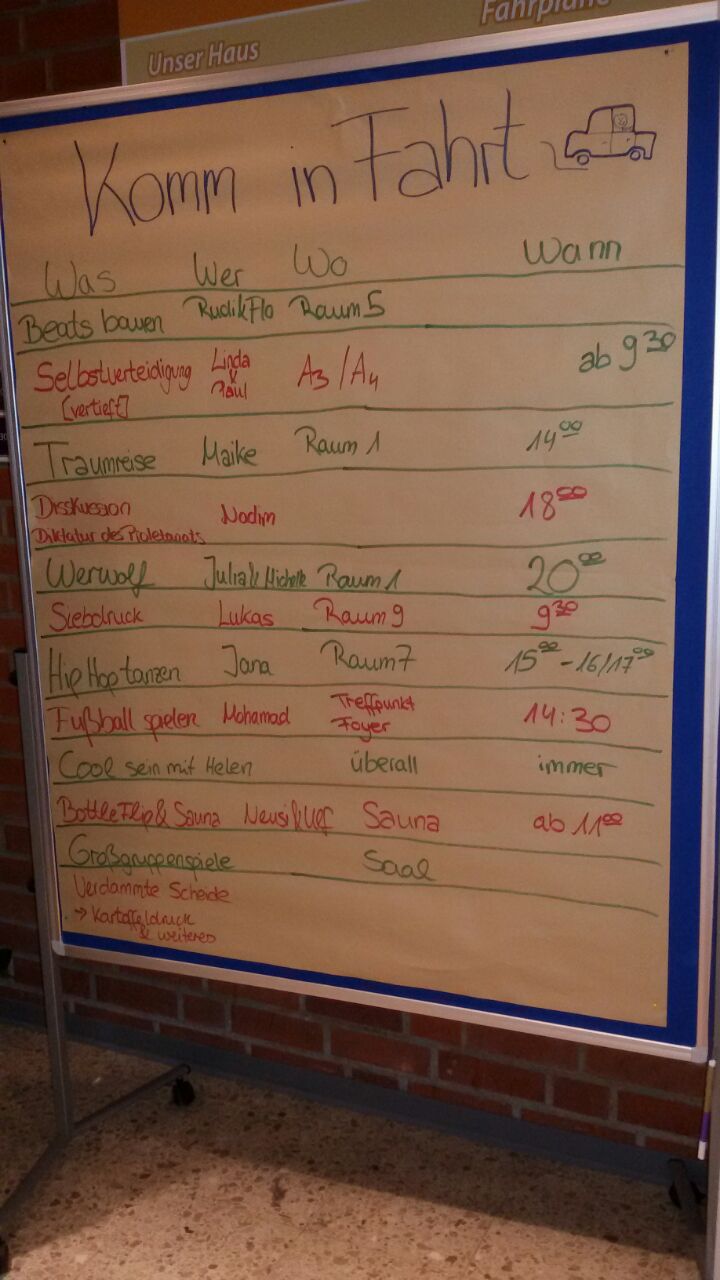 Unser Haus
Fahrpläne
Komm in Fahrt
Was Wer Wo Wann
Beats bauen Rudi&Flo Raum 5
Selbstverteidigung Linda & Paul A3/A4 ab 9 30
[vertieft]
Traumreise Maike Raum 1 14 00
Disskussion Nadim 18 00
Diktatur des Proletariats
Werwolf Julia & Michelle Raum 1 20 00
Siebdruck Lukas Raum 9 9 30
Hip Hop tanzen Jana Raum 7 15 00 - 16/17 00
Fußball spielen Mohamad Treffpunkt Foyer 14:30
Cool sein mit Helen überall immer
Bottle Flip & Sauna Sauna ab 11 00
Großgruppenspiele Saal
Verdammte Scheide
→ Kartoffeldruck
& weiteres